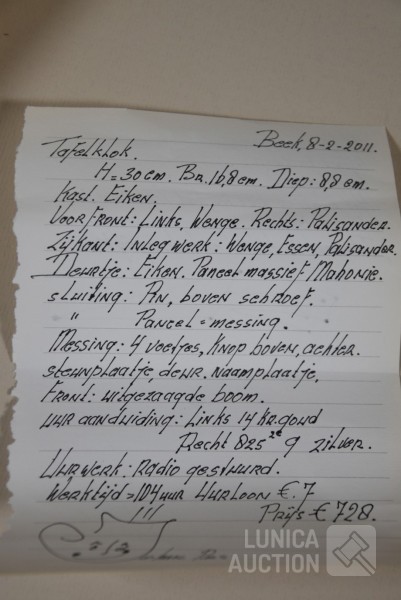 Beek, 8-2-2011.
Tafelklok.
H=30cm. Br. 16,8cm. Diep: 8,8cm.
Kast. Eiken.
Voorfront: Links, Wenge. Rechts: Palisander.
Zijkant: Inlegwerk: Wenge, Essen, Palisander.
Deurtje: Eiken. Paneel massief Mahonie.
sluiting: An, boven schroef.
" Paneel = messing.
Messing: 4 voetjes, Knop boven, achter.
steunplaatje, deur. naamplaatje.
Front: uitgezaagde boom.
uur aanduiding: Links 14 kr. goud
Recht 825 ste g zilver.
Uurwerk: Radio gestuurd.
Werktijd = 104 uur Uurloon €. 7
Prijs € 728.
LUNICA
AUCTION